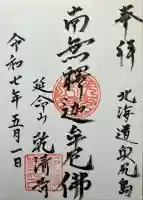 奉拝
北海道奥尻島
南無釋迦牟尼佛
延命山 乾濟寺
令和七年五月一日